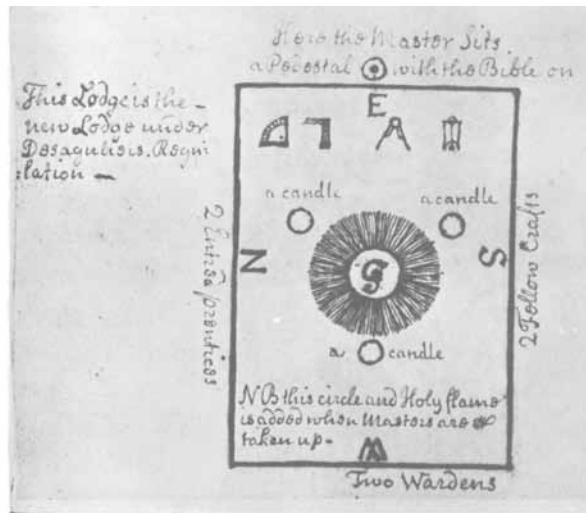 Here the Master Sits
a Pedestal with the Bible on
This Lodge is the
new Lodge under
Desagulisis. Regu
:lation
E
a candle
a candle
N
S
G
2 Enterd prentices
2 Fellow Crafts
a candle
N B this circle and Holy flame
is added when Masters are
taken up
W
Two Wardens